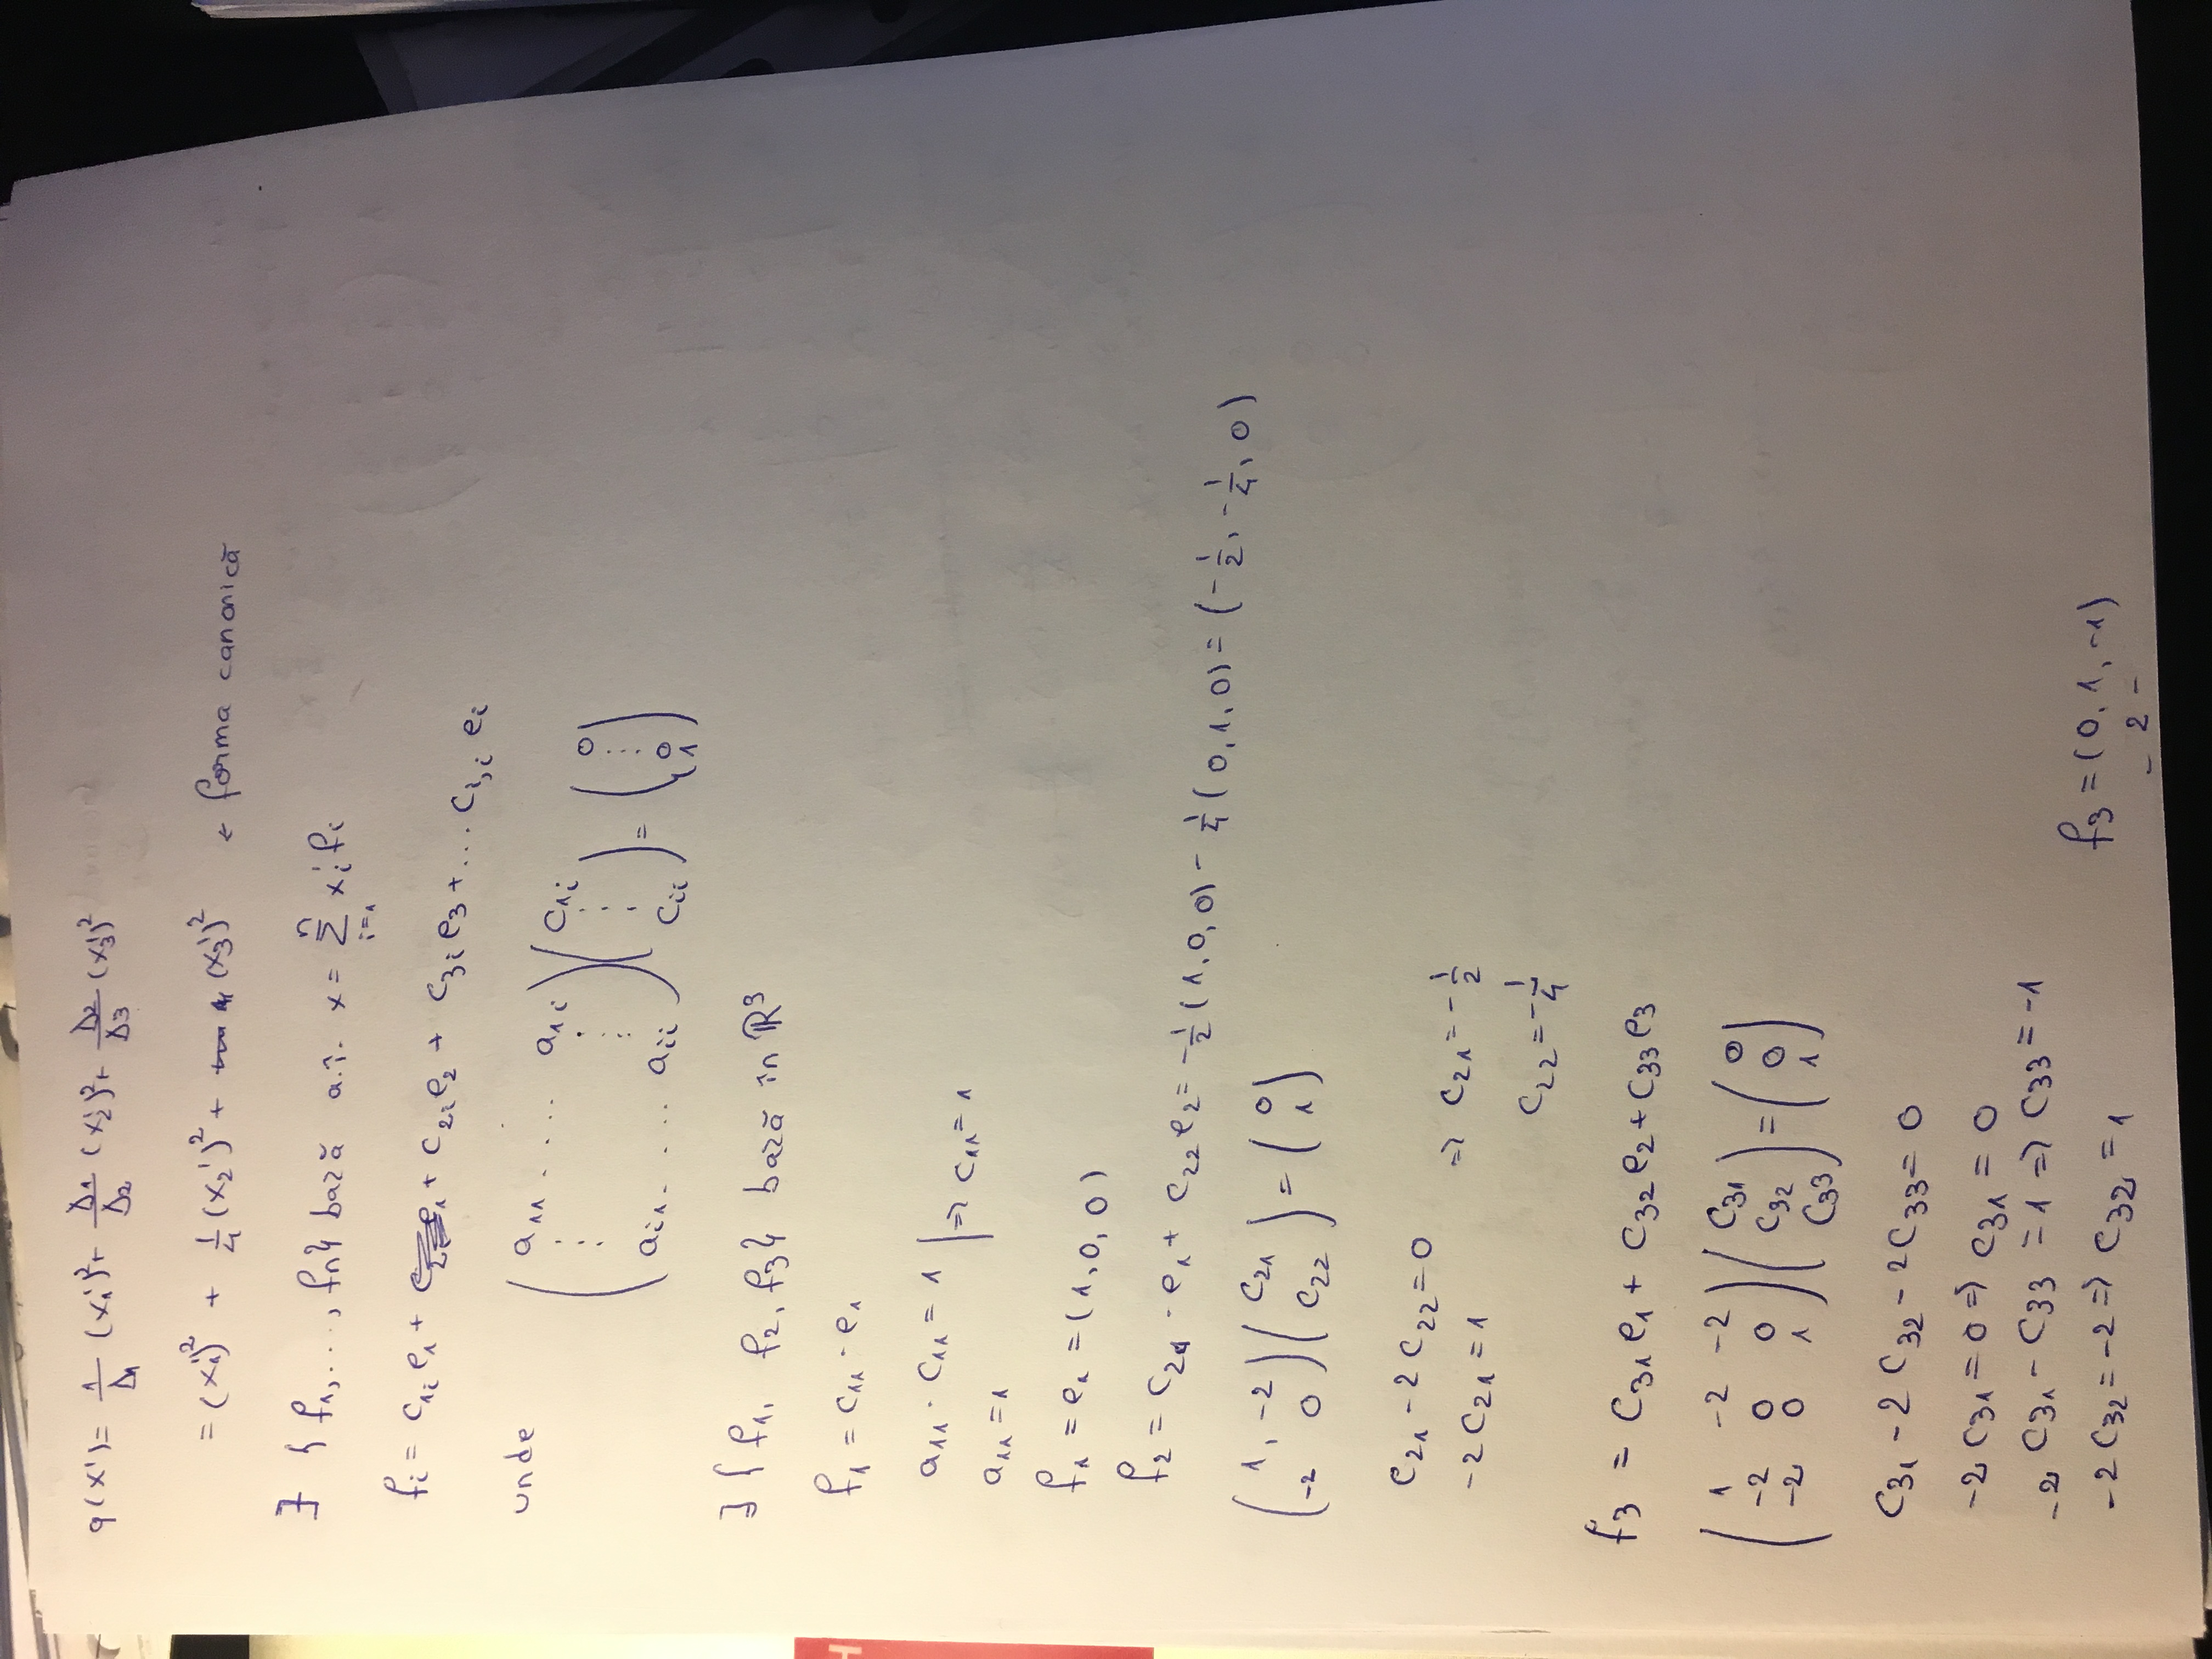 q(x') = 1/Δ1 (x1')² + Δ1/Δ2 (x2')² + Δ2/Δ3 (x3')²
= (x1')² + 1/4 (x2')² + (x3')² ← forma canonică
∃ {f1, ..., fn} bază a.î. x = Σ_{i=1}^{n} xi' fi
fi = c1i e1 + + c2i e2 + c3i e3 + ... ci,i ei
unde ( a11 . . . . a1i ⋮ ⋮ ai1 . . . . aii ) ( c1i ⋮ cii ) = ( 0 ⋮ 0 1 )
∃ {f1, f2, f3} bază în ℝ³
f1 = c11 · e1
a11 · c11 = 1 | ⇒ c11 = 1
a11 = 1
f1 = e1 = (1, 0, 0)
f2 = c21 · e1 + c22 e2 = -1/2 (1, 0, 0) - 1/4 (0, 1, 0) = (-1/2, -1/4, 0)
( 1, -2 ) ( c21 ) = ( 0 )
( -2 0 ) ( c22 ) ( 1 )
c21 - 2 c22 = 0
-2 c21 = 1 ⇒ c21 = -1/2
c22 = -1/4
f3 = c31 e1 + c32 e2 + c33 e3
( 1 -2 -2 ) ( c31 ) ( 0 )
( -2 0 0 ) ( c32 ) = ( 0 )
( -2 0 1 ) ( c33 ) ( 1 )
c31 - 2 c32 - 2 c33 = 0
-2 c31 = 0 ⇒ c31 = 0
-2 c31 - c33 = 1 ⇒ c33 = -1
-2 c32 = -2 ⇒ c32 = 1
f3 = (0, 1, -1)
- 2 -
H